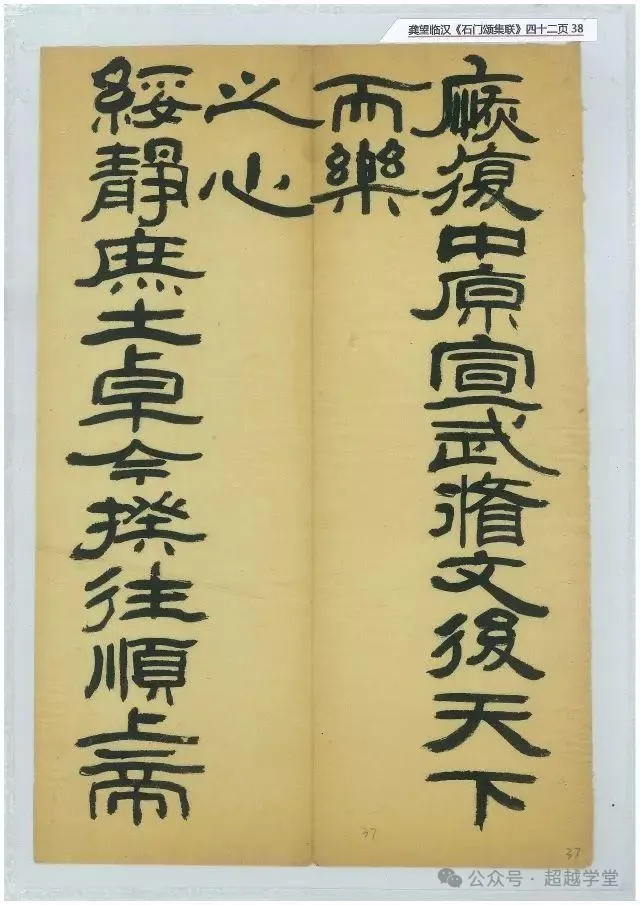 龚望临汉《石门颂集联》四十二页 38
復中原宣武脩文後天下
而樂
綏靜庶士卓今揆往順上帝
之心
37
37
公众号·超越学堂